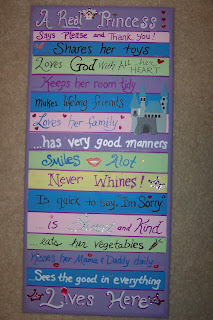 A Real Princess
Says Please and Thank You!
Shares her toys
Loves God With All her HEART
Keeps her room tidy
makes lifelong friends
Loves her family
...has very good manners
Smiles Alot
Never Whines!
Is quick to say, I'm Sorry
...is and Kind
...eats her vegetables
Kisses her Mama & Daddy daily
...Sees the good in everything
Lives Here